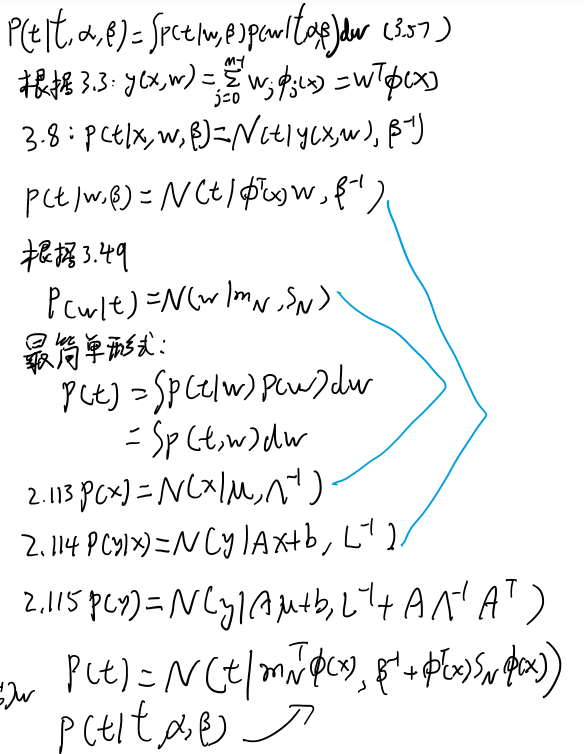 P(t|t,α,β)=∫p(t|w,β)p(w|t,α,β)dw (3.57)
根据3.3: y(x,w)=∑_{j=0}^{m-1} w_jφ_j(x)=W^Tφ(x)
3.8: p(t|x,w,β)=N(t|y(x,w), β^{-1})
p(t|w,β)=N(t|φ^T(x)w, β^{-1})
根据3.49
P(w|t)=N(w|m_N,S_N)
最简单形式:
P(t)=∫p(t|w)p(w)dw
=∫p(t,w)dw
2.113 p(x)=N(x|μ,Λ^{-1})
2.114 p(y|x)=N(y|Ax+b, L^{-1})
2.115 p(y)=N(y|Aμ+b, L^{-1}+AΛ^{-1}A^T)
P(t)=N(t|m_N^Tφ(x), β^{-1}+φ^T(x)S_Nφ(x))
P(t|t,α,β)